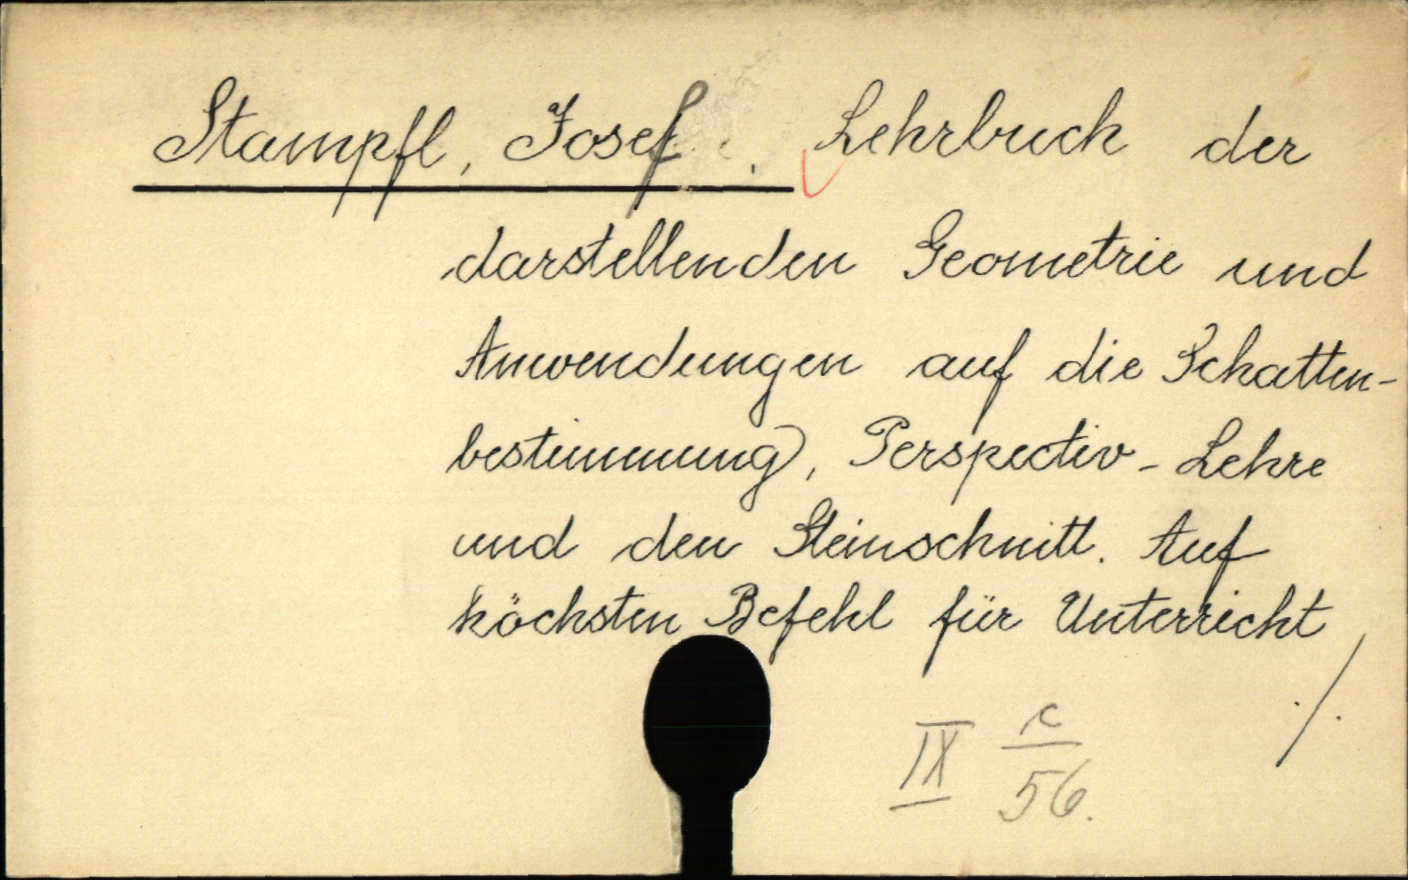 Stampfl, Josef. Lehrbuch der
darstellenden Geometrie und
Anwendungen auf die Schatten-
bestimmung), Perspectiv-Lehre
und den Steinschnitt. Auf
höchsten Befehl für Unterricht
./.
IX c
56.